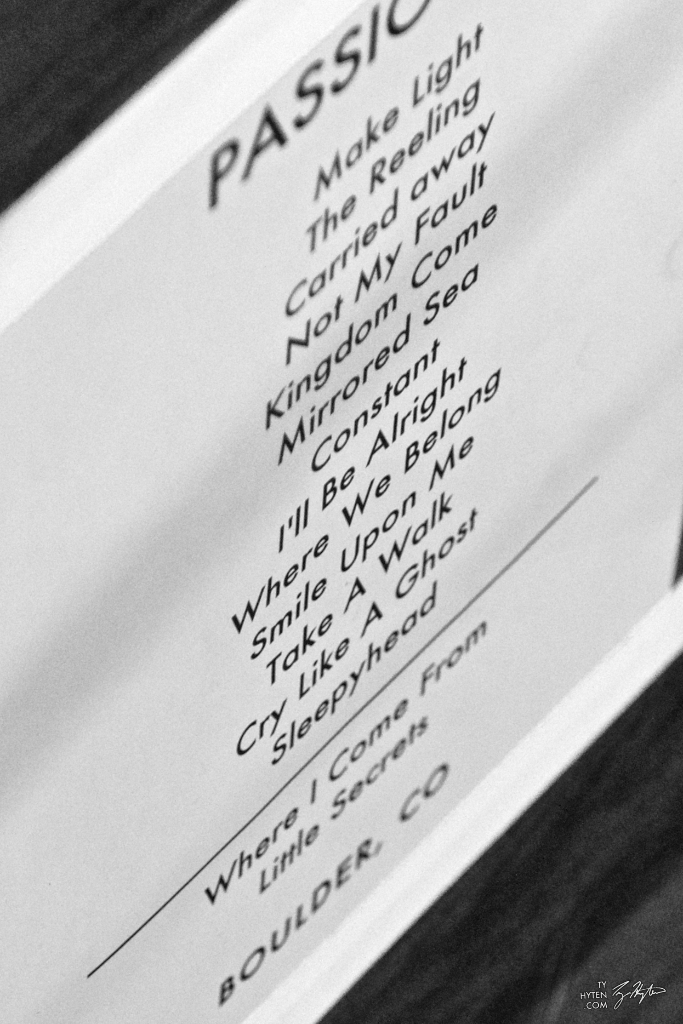 PASSIO
Make Light
The Reeling
Carried away
Not My Fault
Kingdom Come
Mirrored Sea
Constant
I'll Be Alright
Where We Belong
Smile Upon Me
Take A Walk
Cry Like A Ghost
Sleepyhead
Where I Come From
Little Secrets
BOULDER, CO
TY
HYTEN
.COM